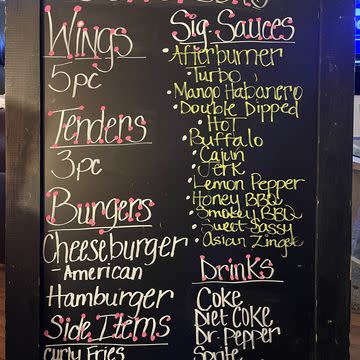 Wings
5pc
Tenders
3pc
Burgers
Cheeseburger
- American
Hamburger
Side Items
Curly Fries
Sig. Sauces
• Afterburner
• Turbo
• Mango Habanero
• Double Dipped
• Hot
• Buffalo
• Cajun
• Jerk
• Lemon Pepper
• Honey BBQ
• Smokey BBQ
• Sweet Sassy
• Asian Zinger
Drinks
Coke
Diet Coke
Dr. Pepper
Sprite